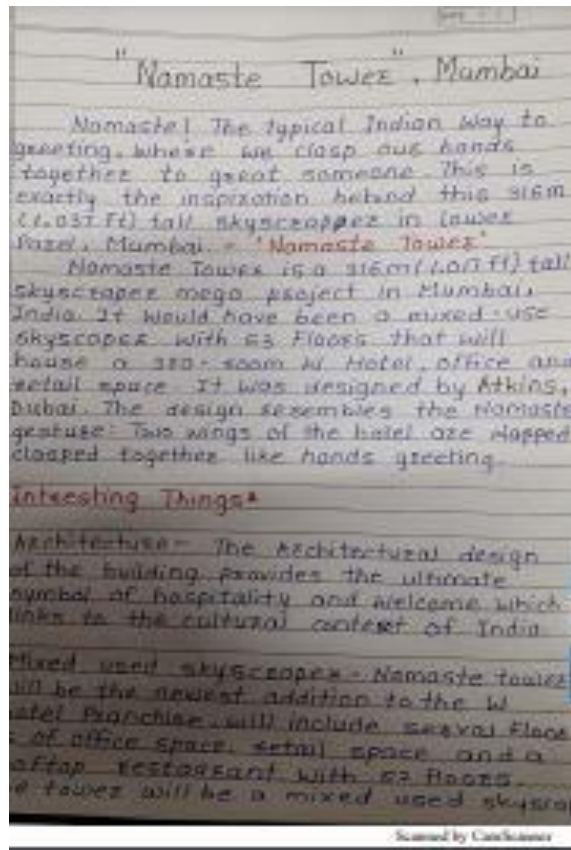 "Namaste Tower", Mumbai
Namaste! The typical Indian way to
greeting, where we clasp our hands
together to great someone. This is
exactly the inspiration behind this 316m
(1,037 ft) tall skyscrapper in Lower
Parel, Mumbai. - "Namaste Tower"
Namaste Tower is a 316m (1,037 ft) tall
skyscraper mega project in Mumbai,
India. It would have been a mixed-use
skyscaper with 63 floors that will
house a 380-room W Hotel, office and
retail space. It was designed by Atkins,
Dubai. The design resembles the Namaste
gesture: Two wings of the hotel are
clasped together like hands greeting.
Intresting Things*
Architecture- The Architectural design
of the building provides the ultimate
symbol of hospitality and welcome which
links to the cultural context of India
Mixed used skyscraper - Namaste tower
will be the newest addition to the W
Hotel will include floor
s of office space, retail space and a
rooftop with floors.
e tower will be a mixed used skyscrap
Scanned by CamScanner